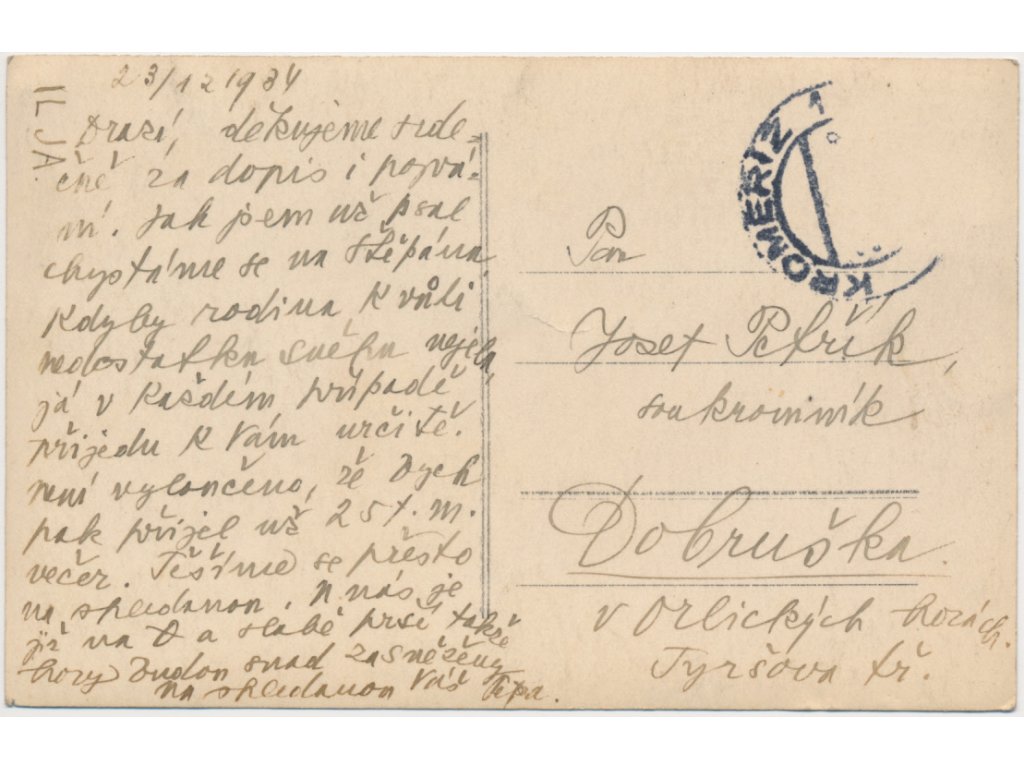 23/12 1934
ILJA.
Drazí, děkujeme srde-
čně za dopis i pozvá-
ní. Jak jsem už psal
chystáme se na Štěpána
Kdyby rodina k vůli
nedostatku sněhu nejela,
já v každém případě
přijedu k Vám určitě.
není vyloučeno, že bych
pak přijel už 25 t. m.
večer. Těšíme se přesto
na shledanou. U nás je
již na 0 a slabě prší takže
hory budou snad zasněženy
na shledanou Váš Pepa.
KROMĚŘÍŽ 1
Pan
Josef Petřík,
soukromník
Dobruška.
v Orlických horách.
Tyršova tř.